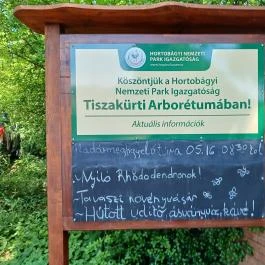 HORTOBÁGYI NEMZETI
PARK IGAZGATÓSÁG
Köszöntjük a Hortobágyi
Nemzeti Park Igazgatóság
Tiszakürti Arborétumában!
Aktuális információk
Madármegfigyelő túra 05.16 08:30 tól
~Nyíló Rhododendronok!
~Tavaszi növényvásár
~Hűtött üdítő, ásványvíz, kávé!